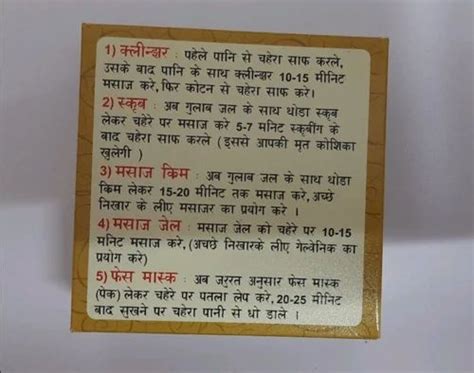 1) क्लीन्झर : पहेले पानि से चहेरा साफ करले,
उसके बाद पानि के साथ क्लीन्झर 10-15 मीनिट
मसाज करे, फिर कोटन से चहेरा साफ करे।
2) स्कृब : अब गुलाब जल के साथ थोडा स्कृब
लेकर चहेरे पर मसाज करे 5-7 मनिट स्कृबींग के
बाद चहेरा साफ करले (इससे आपकी मृत कोशिका
खुलेगी )
3) मसाज क्रिम : अब गुलाब जल के साथ थोडा
क्रिम लेकर 15-20 मीनीट तक मसाज करे, अच्छे
निखार के लीए मसाजर का प्रयोग करे ।
4) मसाज जेल : मसाज जेल को चहेरे पर 10-15
मनिट मसाज करे, (अचछे निखारके लीए गेल्वेनिक का
प्रयोग करे)
5) फेस मास्क : अब जरुरत अनुसार फेस मास्क
(पेक) लेकर चहेरे पर पतला लेप करे, 20-25 मीनीट
बाद सुखने पर चहेरा पानी से धो डाले ।